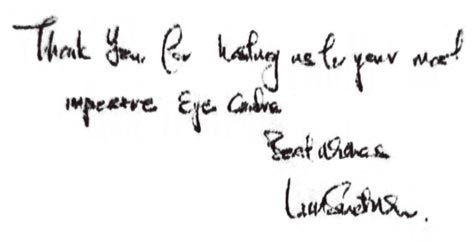 Thank You for hosting us to your most
impressive Eye Centre
Best wishes